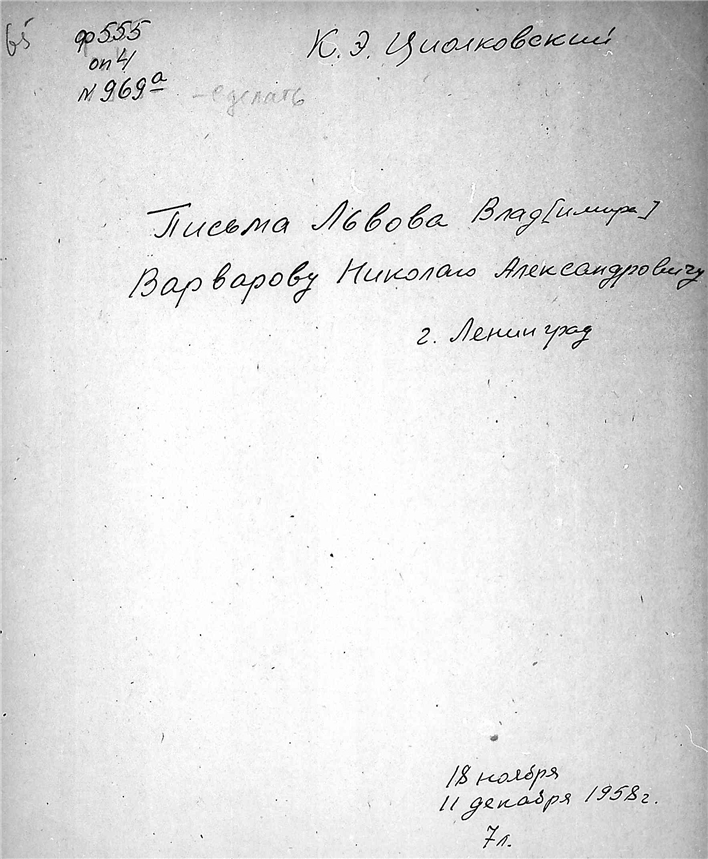 65
ф555
оп 4
№ 969а
К. Э. Циолковский
- сделать
Письма Львова Влад[имира]
Варварову Николаю Александровичу
г. Ленинград
18 ноября
11 декабря 1958 г.
7 л.